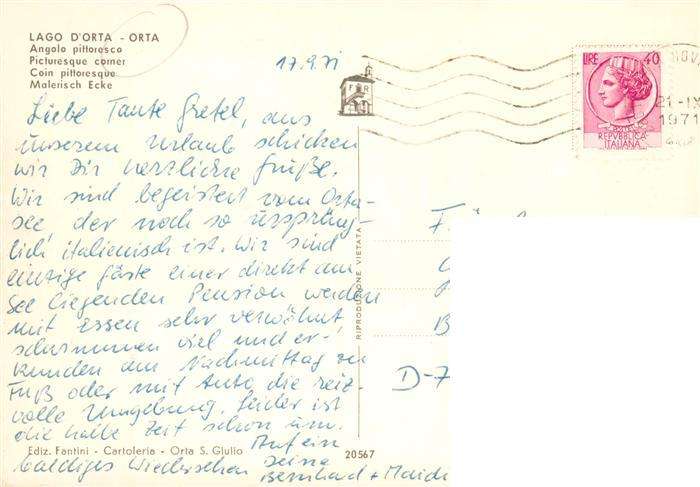 LAGO D'ORTA - ORTA
Angolo pittoresco
Picturesque corner
Coin pittoresque
Malerisch Ecke
17.9.71
Liebe Tante Gretel, aus
unserem Urlaub schicken
wir Dir herzliche Grüße.
Wir sind begeistert vom Orta-
see, der noch so ursprüng-
lich italienisch ist. Wir sind
einzige Gäste einer direkt am
See liegenden Pension werden
mit Essen sehr verwöhnt,
schwimmen viel und er-
kunden am Nachmittag zu
Fuß oder mit Auto die reiz-
volle Umgebung. Leider ist
die halbe Zeit schon um.
Auf ein
baldiges Wiedersehen Deine
Bernhard + Heidi
Ediz. Fantini - Cartoleria - Orta S. Giulio
20567
RIPRODUZIONE VIETATA
LIRE 40
REPVBBLICA
ITALIANA
NOVA
21-IX
1971
F
B
D-7